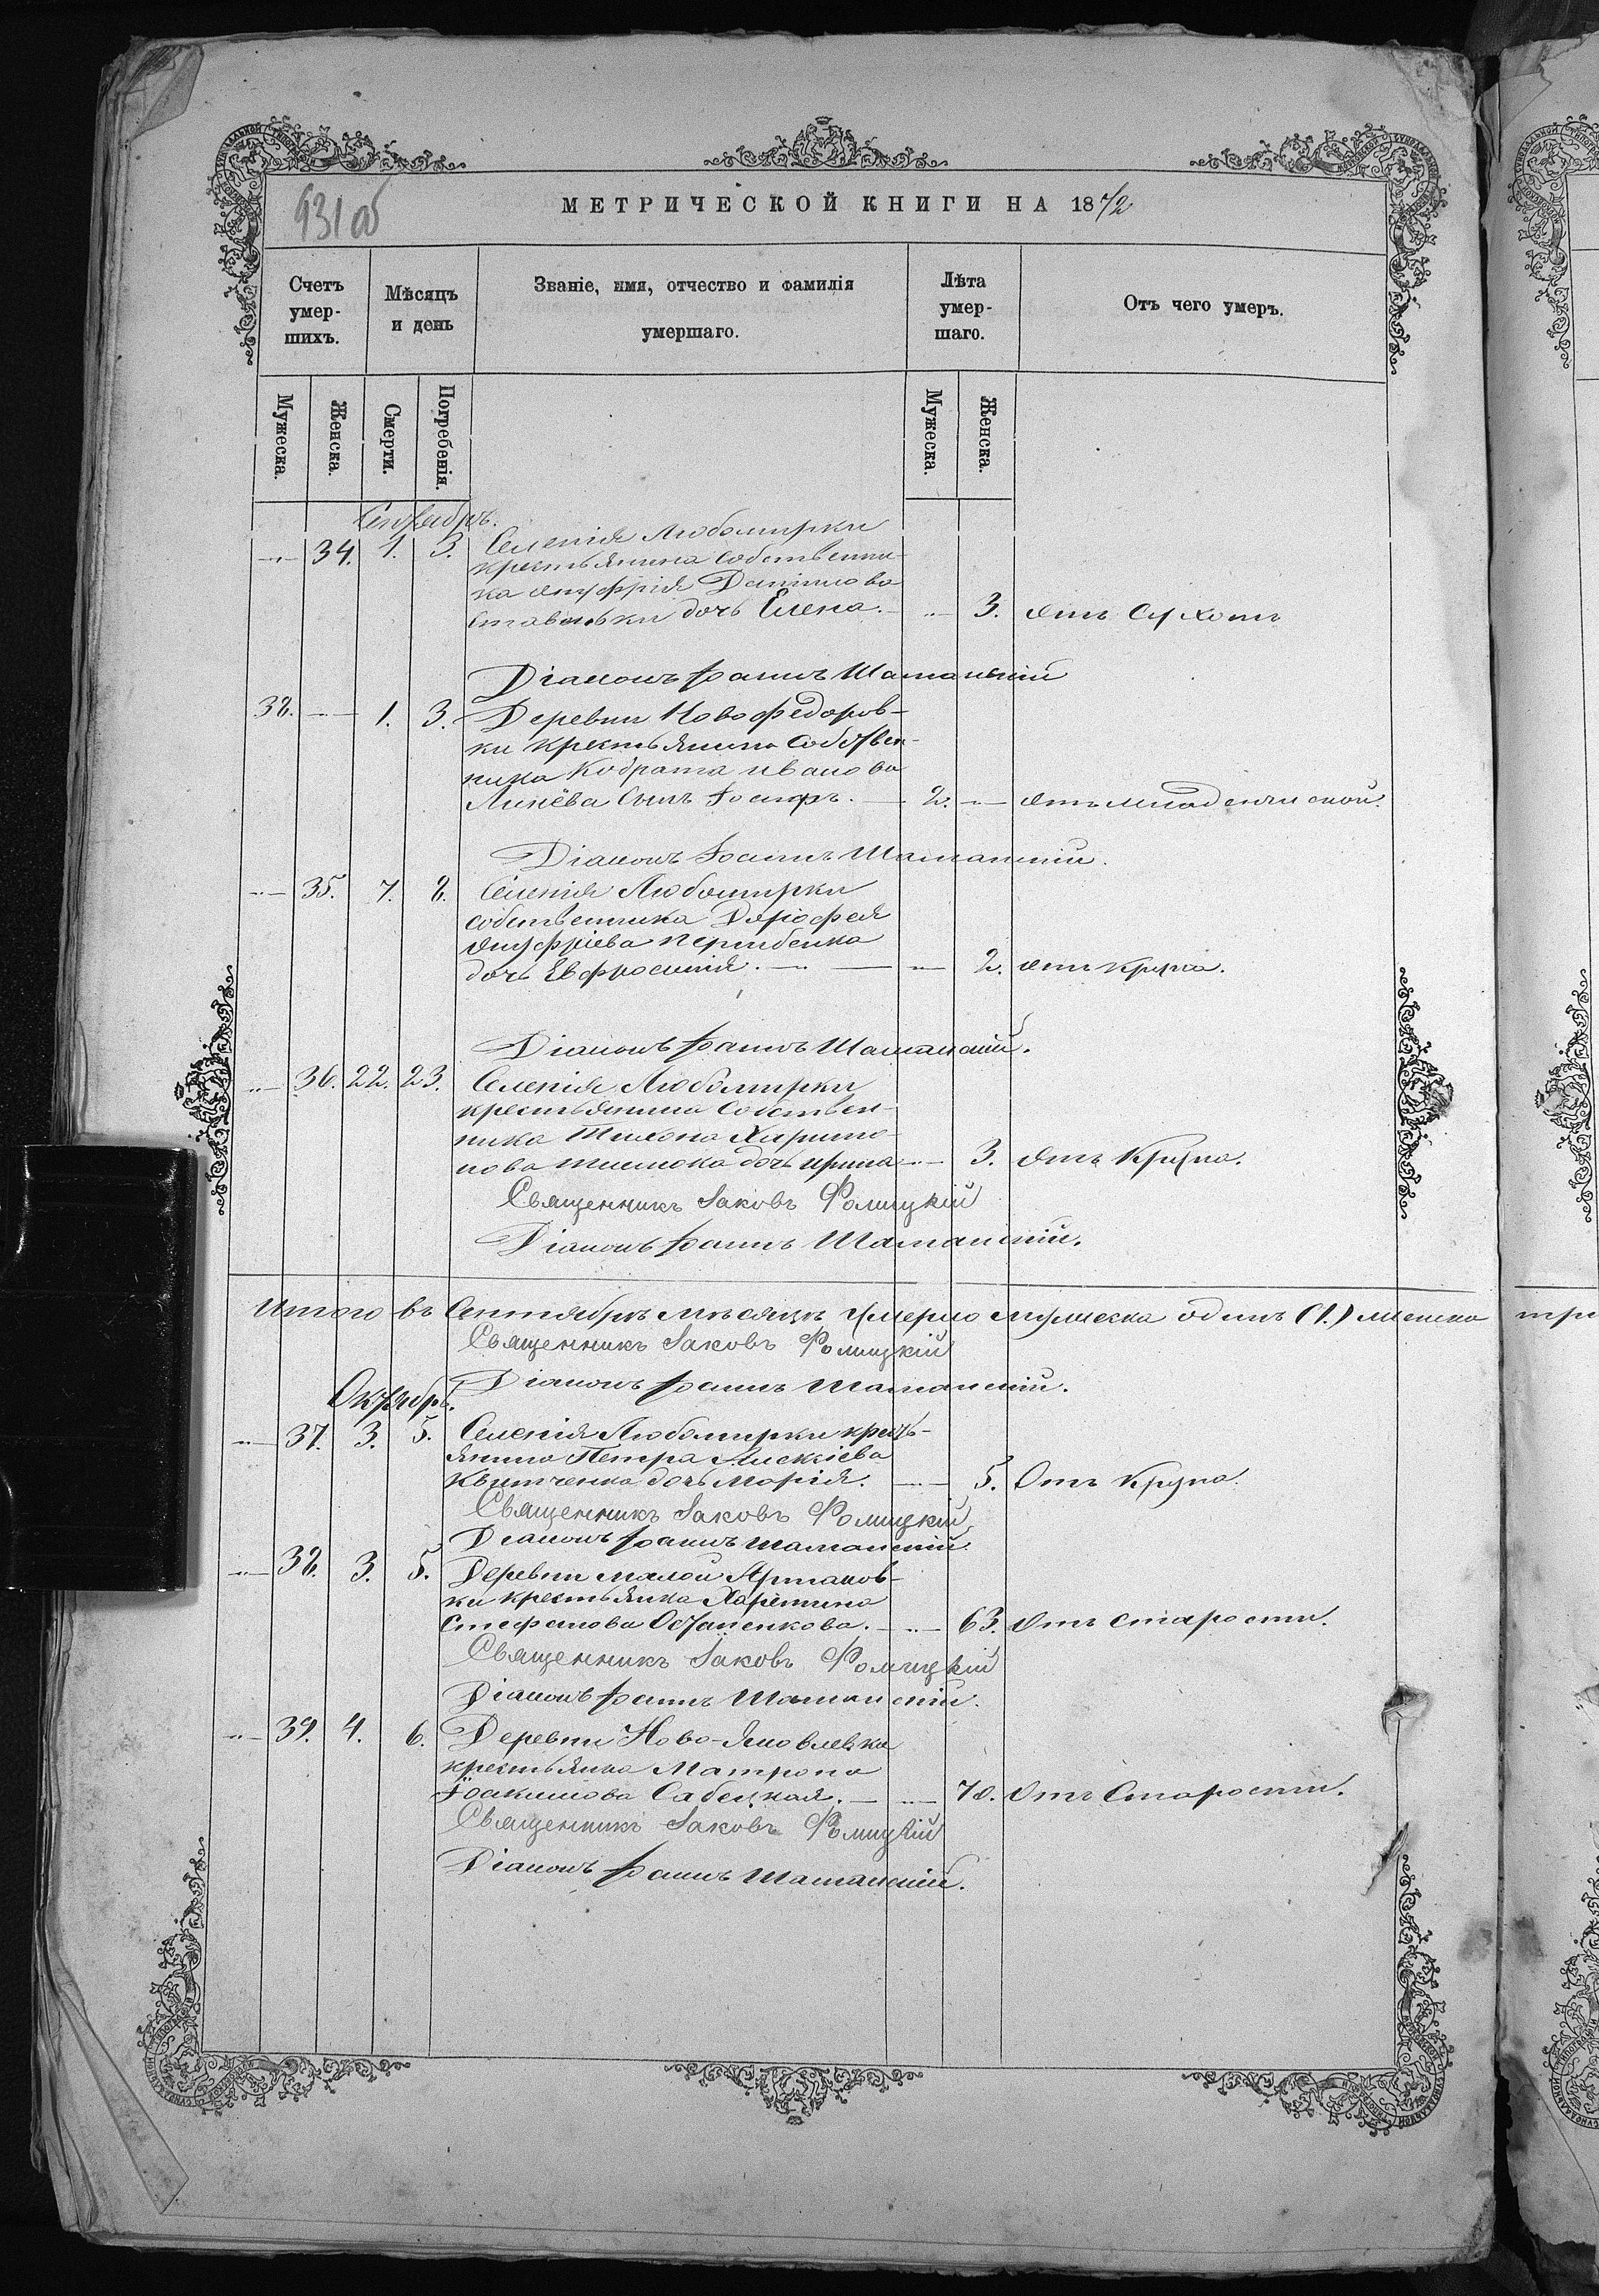 931 об
МЕТРИЧЕСКОЙ КНИГИ НА 1872
Счетъ умер-шихъ.
Мѣсяцъ и день
Званіе, имя, отчество и фамилія умершаго.
Лѣта умер-шаго.
Отъ чего умеръ.
Мужеска.
Женска.
Смерти.
Погребенія.
Мужеска.
Женска.
Сентябрь.
34. 1. 3. Селенія Любомирки
крестьянина собственни-
ка Онуфрія Данилова
дочь Елена. 3. Отъ Сухотъ
Діаконъ Іоаннъ Шаманскій
38. 1. 3. Деревни Новофедоров-
ки крестьянина Собствен-
ника Кодрата Иванова
Линёва Сынъ Іосифъ. 2. Отъ младенческой.
Діаконъ Іоаннъ Шаманскій.
35. 7. 8. Селенія Любомирки
собственника Дорофея
Онуфріева
дочь Евфросинія. 2. Отъ крупа.
Діаконъ Іоаннъ Шаманскій.
36. 22. 23. Селенія Любомирки
крестьянина Собствен-
ника Тихона Харито-
нова дочь Ирина 3. Отъ Крупа.
Священникъ Іаковъ Фомицкій
Діаконъ Іоаннъ Шаманскій.
Итого въ Сентябрѣ мѣсяцѣ умерло мужеска одинъ (1.) женска три
Священникъ Іаковъ Фомицкій
Діаконъ Іоаннъ Шаманскій.
Октябрь.
37. 3. 5. Селенія Любомирки кресть-
янина Петра Алексіева
Квитченка дочь Марія. 5. Отъ Крупа.
Священникъ Іаковъ Фомицкій
Діаконъ Іоаннъ Шаманскій.
38. 3. 5. Деревни малой
крестьянка Харитина
Стефанова Остапенкова. 63. Отъ старости.
Священникъ Іаковъ Фомицкій
Діаконъ Іоаннъ Шаманскій.
39. 4. 6. Деревни Ново-Яковлевки
крестьянка Матрона
Іоакимова Сабецкая. 70. Отъ Старости.
Священникъ Іаковъ Фомицкій
Діаконъ Іоаннъ Шаманскій.